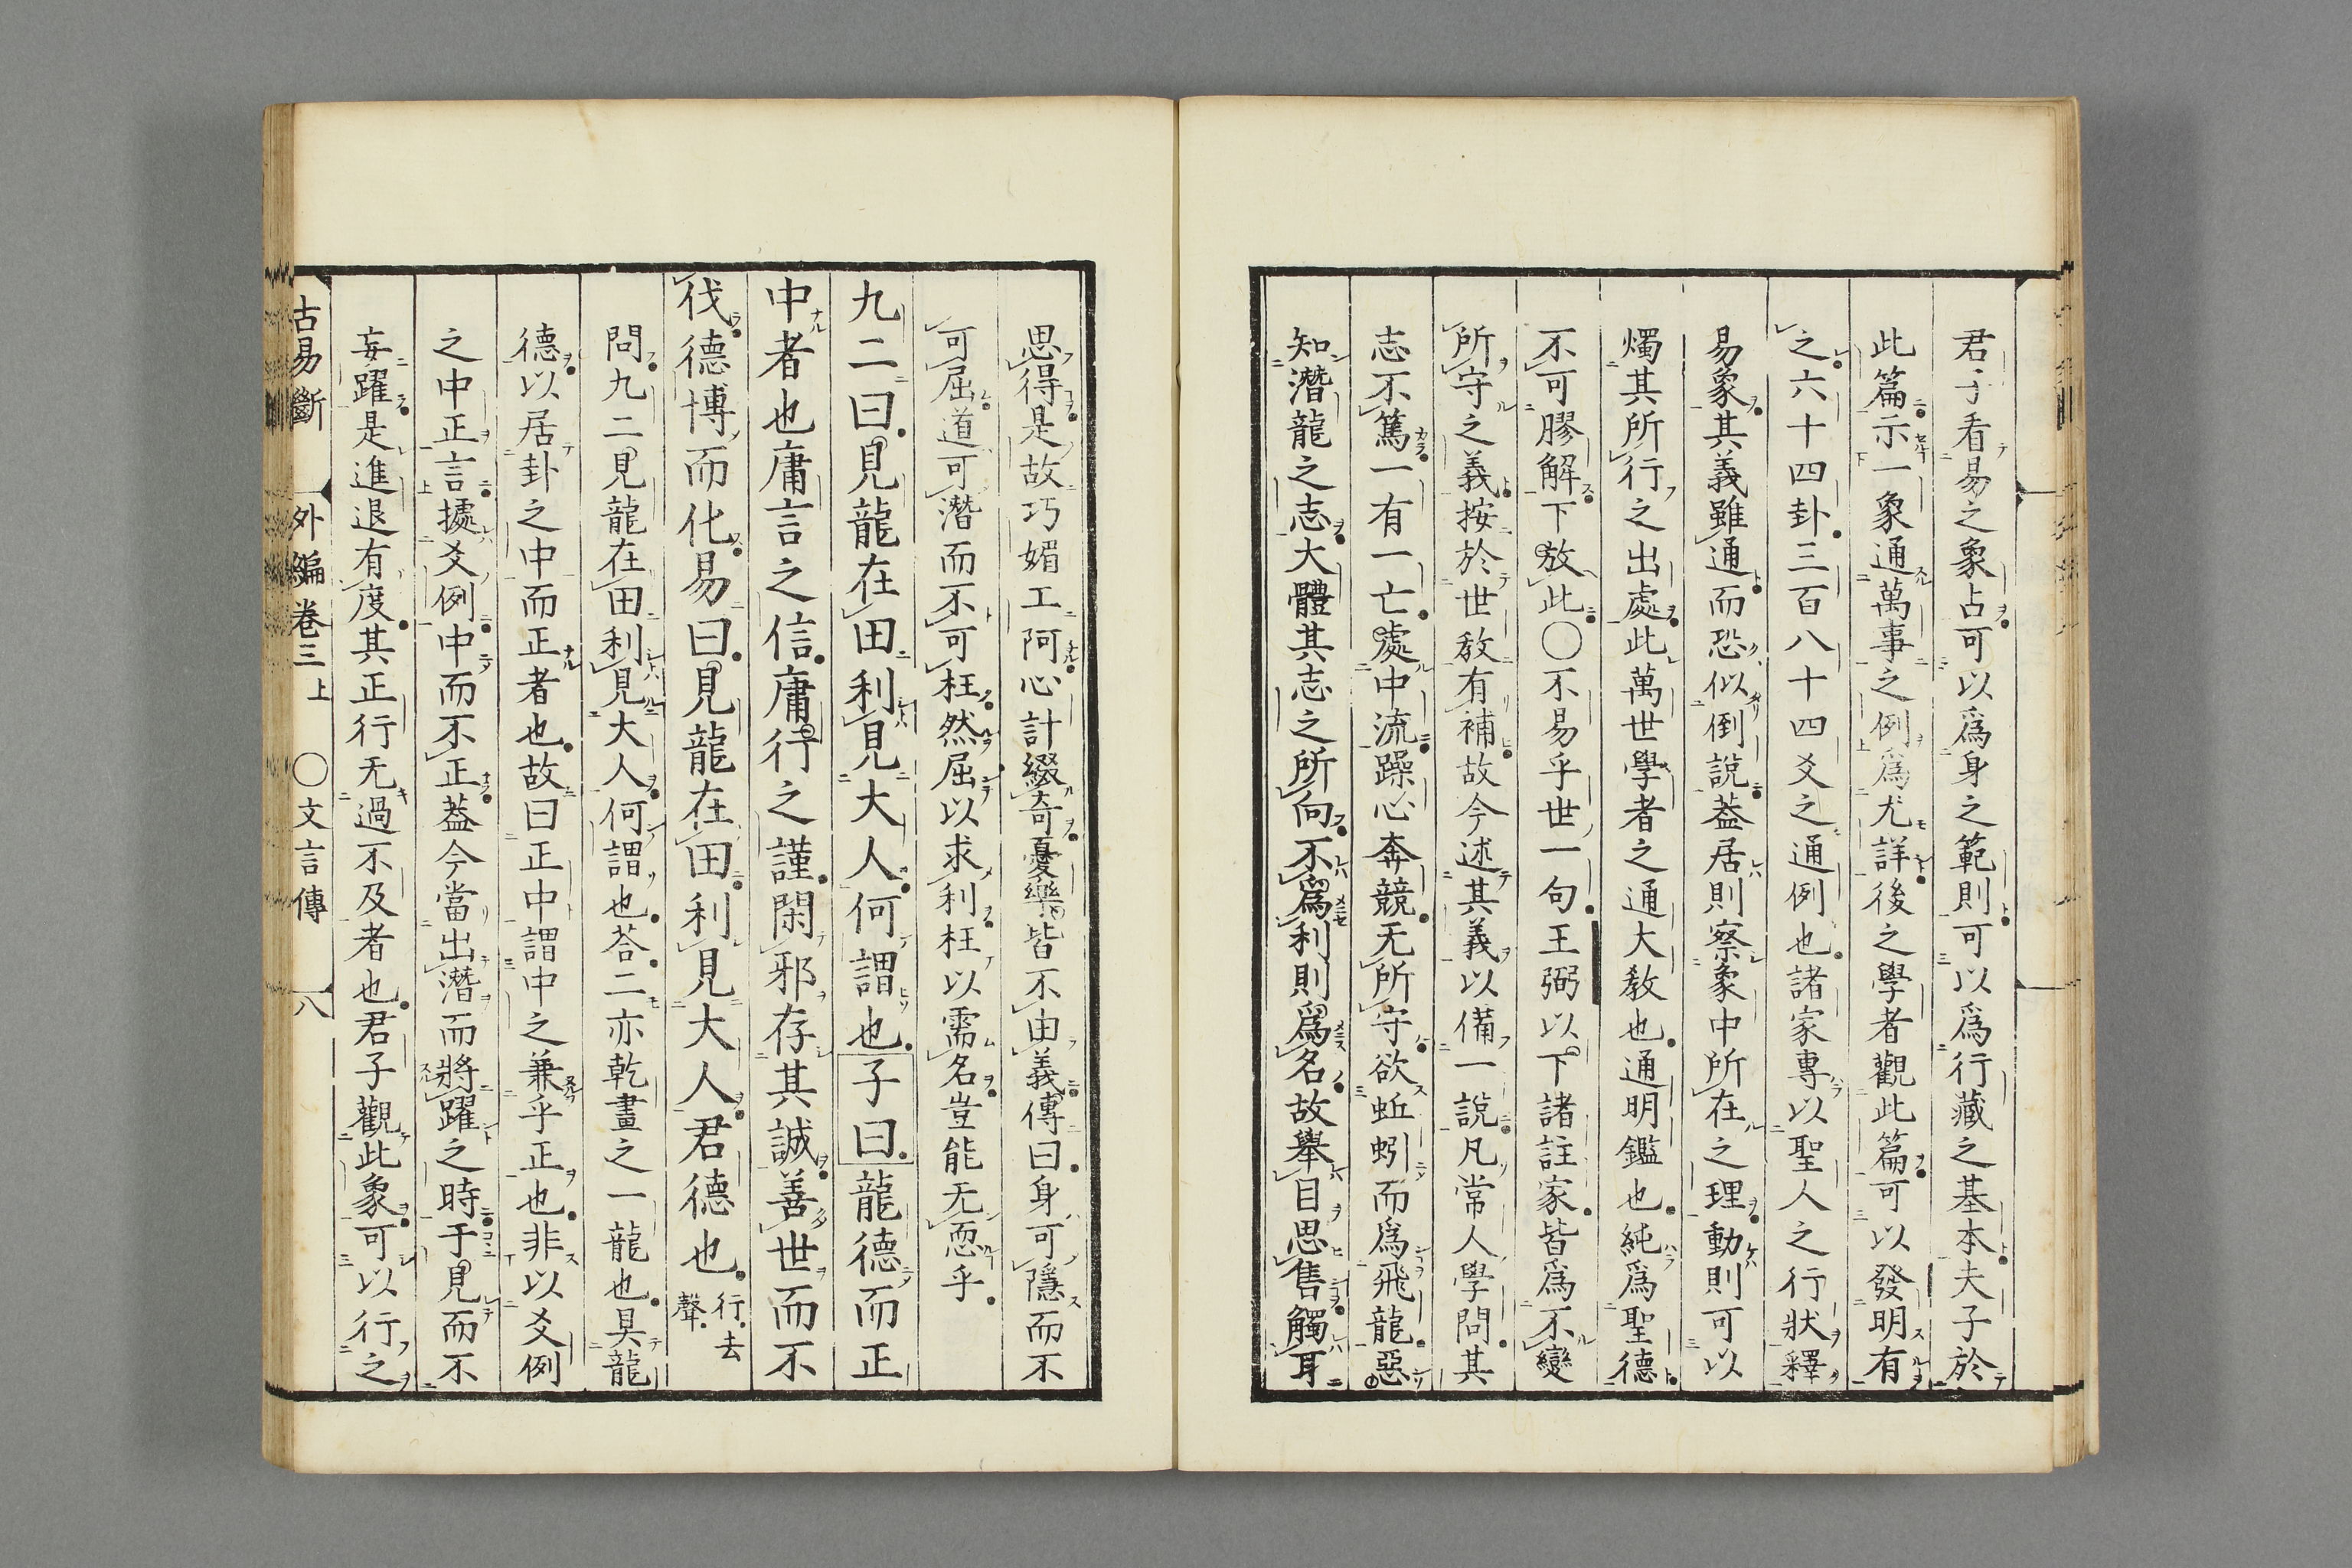 君子看易之象占可以爲身之範則可以爲行藏之基本夫子於
此篇示一象通萬事之例爲尤詳後之學者觀此篇可以發明有
之六十四卦三百八十四爻之通例也諸家專以聖人之行狀釋
易象其義雖通而恐似倒說葢居則察象中所在之理動則可以
燭其所行之出處此萬世學者之通大敎也通明鑑也純爲聖德
不可膠解下放此○不易乎世一句王弼以下諸註家皆爲不變
所守之義按於世敎有補故今述其義以備一說凡常人學問其
志不篤一有一亡處中流躁心奔競无所守欲蚯蚓而爲飛龍惡
知潛龍之志大體其志之所向不爲利則爲名故舉目思售觸耳
思得是故巧媚工阿心計綴奇憂樂皆不由義傳曰身可隱而不
可屈道可潛而不可枉然屈以求利枉以需名豈能无悪乎
九二曰見龍在田利見大人何謂也子曰龍德而正
中者也庸言之信庸行之謹閑邪存其誠善世而不
伐德博而化易曰見龍在田利見大人君德也行去聲
問九二見龍在田利見大人何謂也荅二亦乾畫之一龍也具龍
德以居卦之中而正者也故曰正中謂中之兼乎正也非以爻例
之中正言據爻例中而不正葢今當出潛而將躍之時于見而不
妄躍是進退有度其正行无過不及者也君子觀此象可以行之
古易斷 外編卷三上 ○文言傳 八